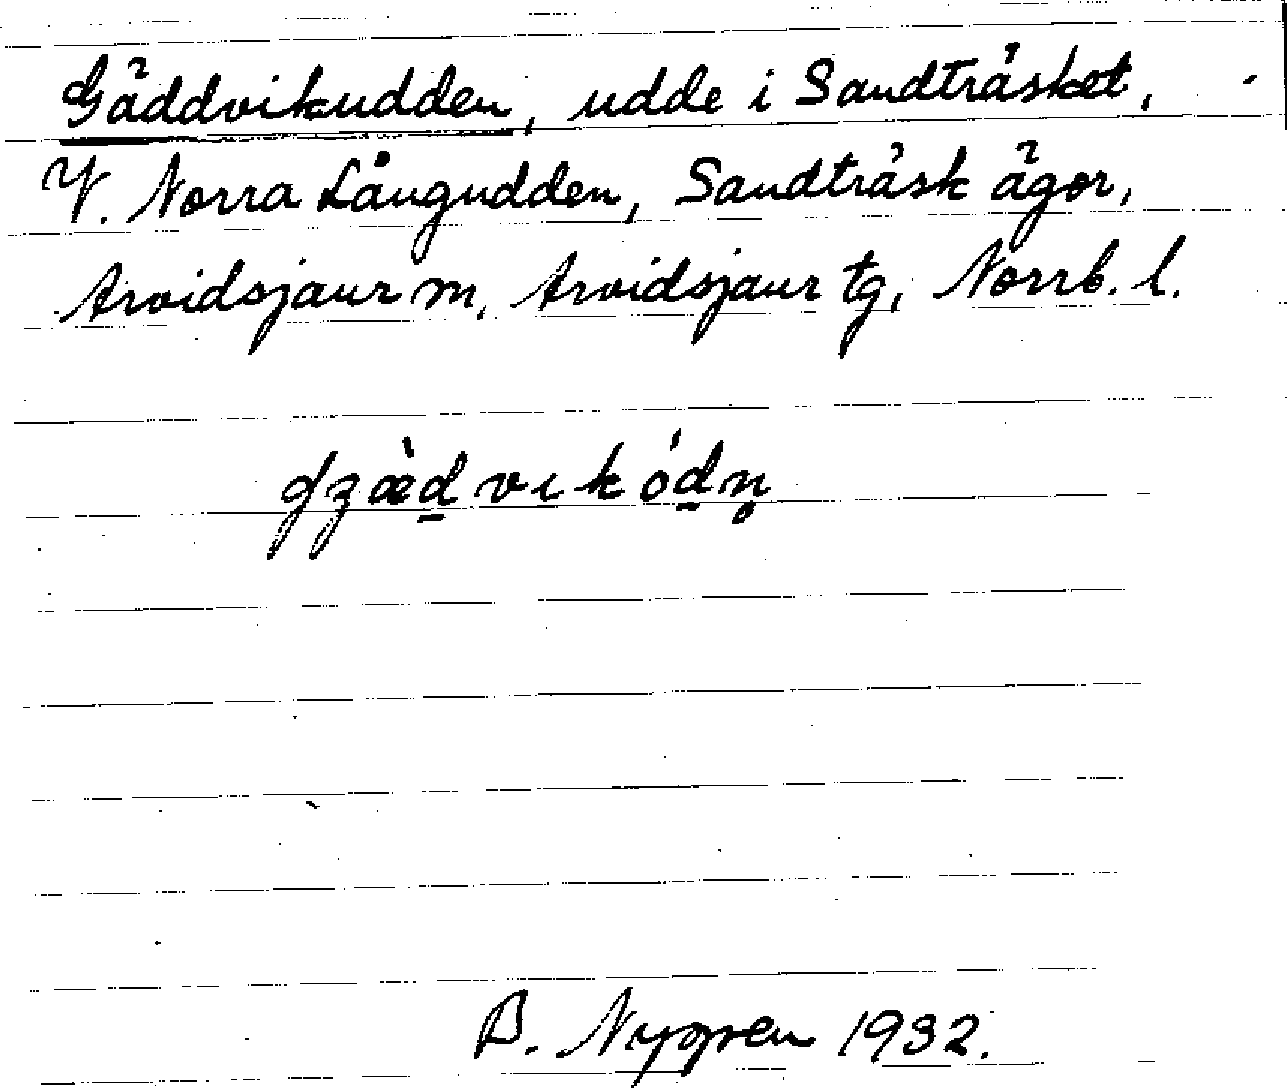 Gäddvikudden, udde i Sandträsket,
V. Norra Långudden, Sandträsk ägor,
Arvidsjaur m, Arvidsjaur tg, Norrb. l.
gʒæ̀d̲vɩkód̲n̥
B. Nygren 1932.